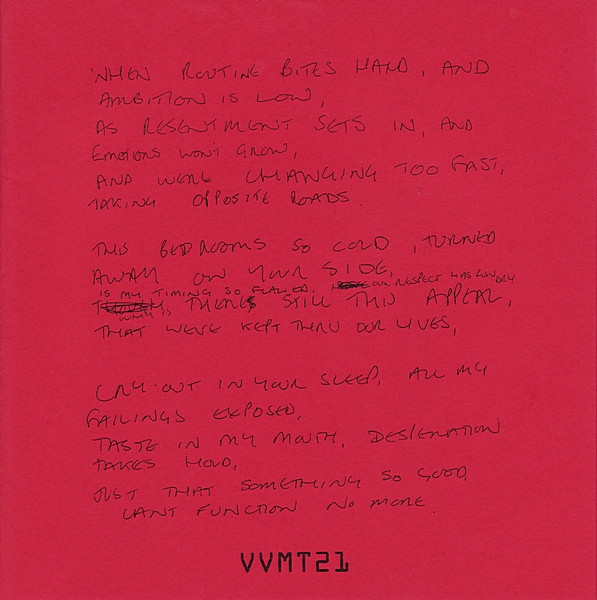 WHEN ROUTINE BITES HARD, AND
AMBITION IS LOW,
AS RESENTMENT SETS IN, AND
EMOTIONS WON'T GROW,
AND WERE CHANGING TOO FAST,
TAKING OPPOSITE ROADS.
THIS BEDROOMS SO COLD, TURNED
AWAY ON YOUR SIDE,
IS MY TIMING SO FLAWED. OUR RESPECT HAS RUN DRY
WHY IS THERES STILL THIS APPEAL,
THAT WE'VE KEPT THRU OUR LIVES,
CRY OUT IN YOUR SLEEP, ALL MY
FAILINGS EXPOSED,
TASTE IN MY MOUTH, DESPERATION
TAKES HOLD,
JUST THAT SOMETHING SO GOOD
CANT FUNCTION NO MORE.
VVMT21